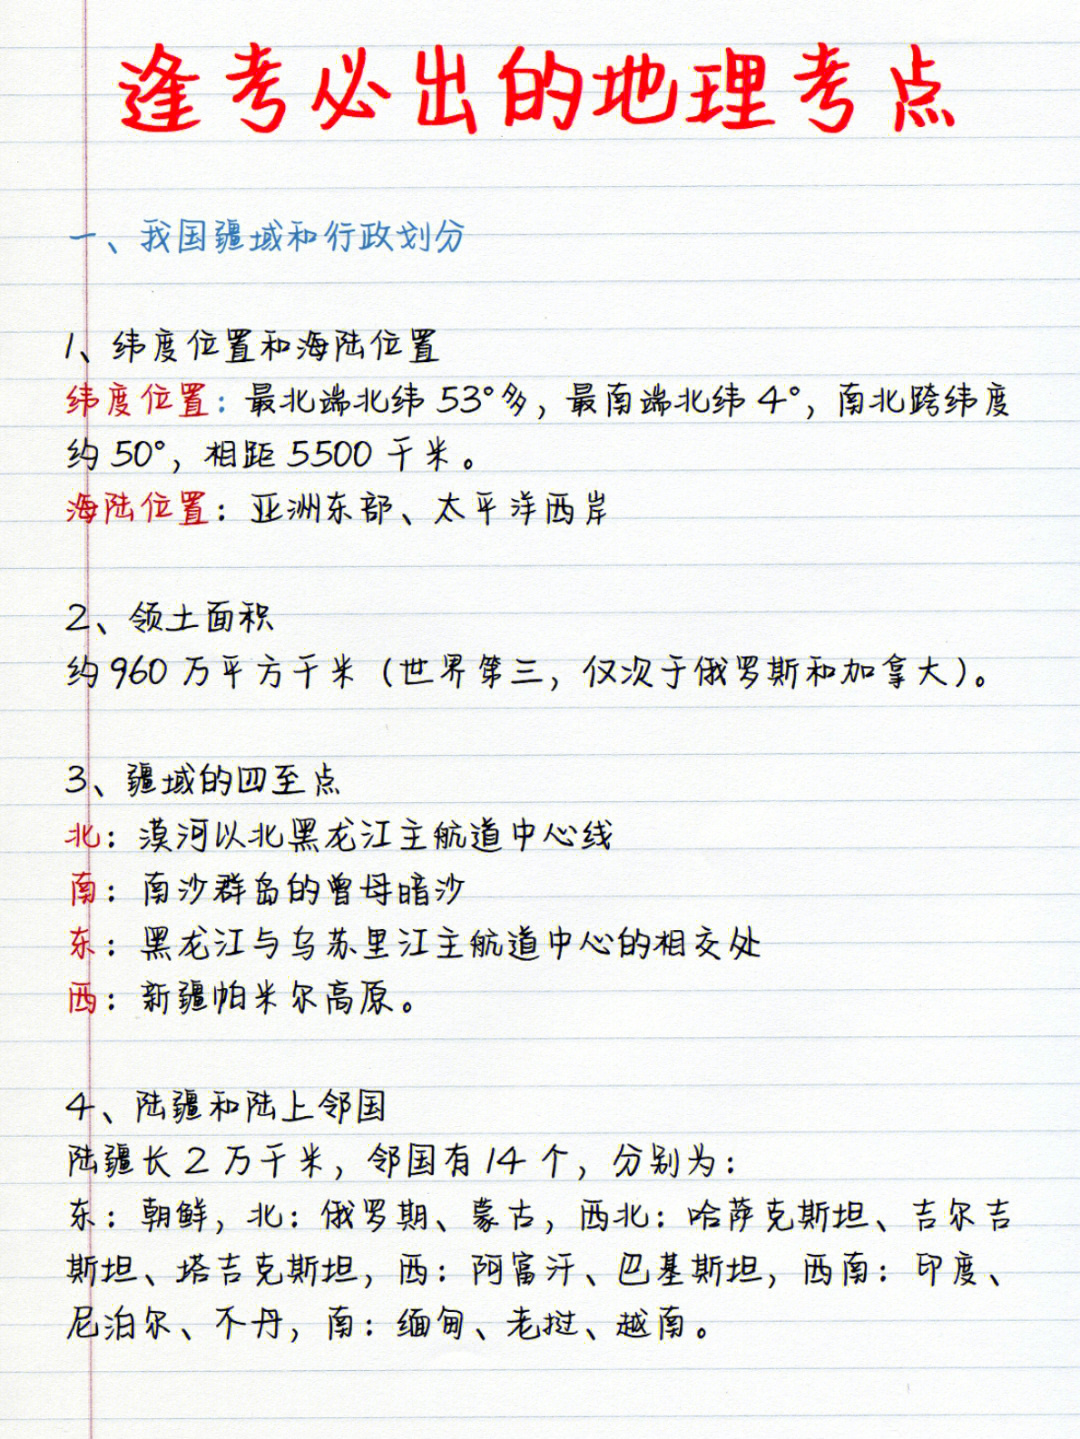 逢考必出的地理考点
一、我国疆域和行政划分
1、纬度位置和海陆位置
纬度位置：最北端北纬 53°多，最南端北纬 4°，南北跨纬度
约 50°，相距 5500 千米。
海陆位置：亚洲东部、太平洋西岸
2、领土面积
约 960 万平方千米（世界第三，仅次于俄罗斯和加拿大）。
3、疆域的四至点
北：漠河以北黑龙江主航道中心线
南：南沙群岛的曾母暗沙
东：黑龙江与乌苏里江主航道中心的相交处
西：新疆帕米尔高原。
4、陆疆和陆上邻国
陆疆长 2 万千米，邻国有 14 个，分别为：
东：朝鲜，北：俄罗期、蒙古，西北：哈萨克斯坦、吉尔吉
斯坦、塔吉克斯坦，西：阿富汗、巴基斯坦，西南：印度、
尼泊尔、不丹，南：缅甸、老挝、越南。